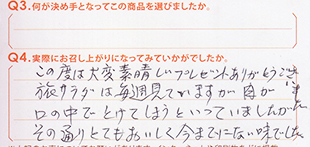 Q3.何が決め手となってこの商品を選びましたか。
Q4.実際にお召し上がりになってみていかがでしたか。
この度は大変素晴しいプレゼントありがとうござ
旅サラダは毎週見ていますが 肉が
口の中でとけてしまうといっていましたが
その通りとてもおいしく今までにない味でした